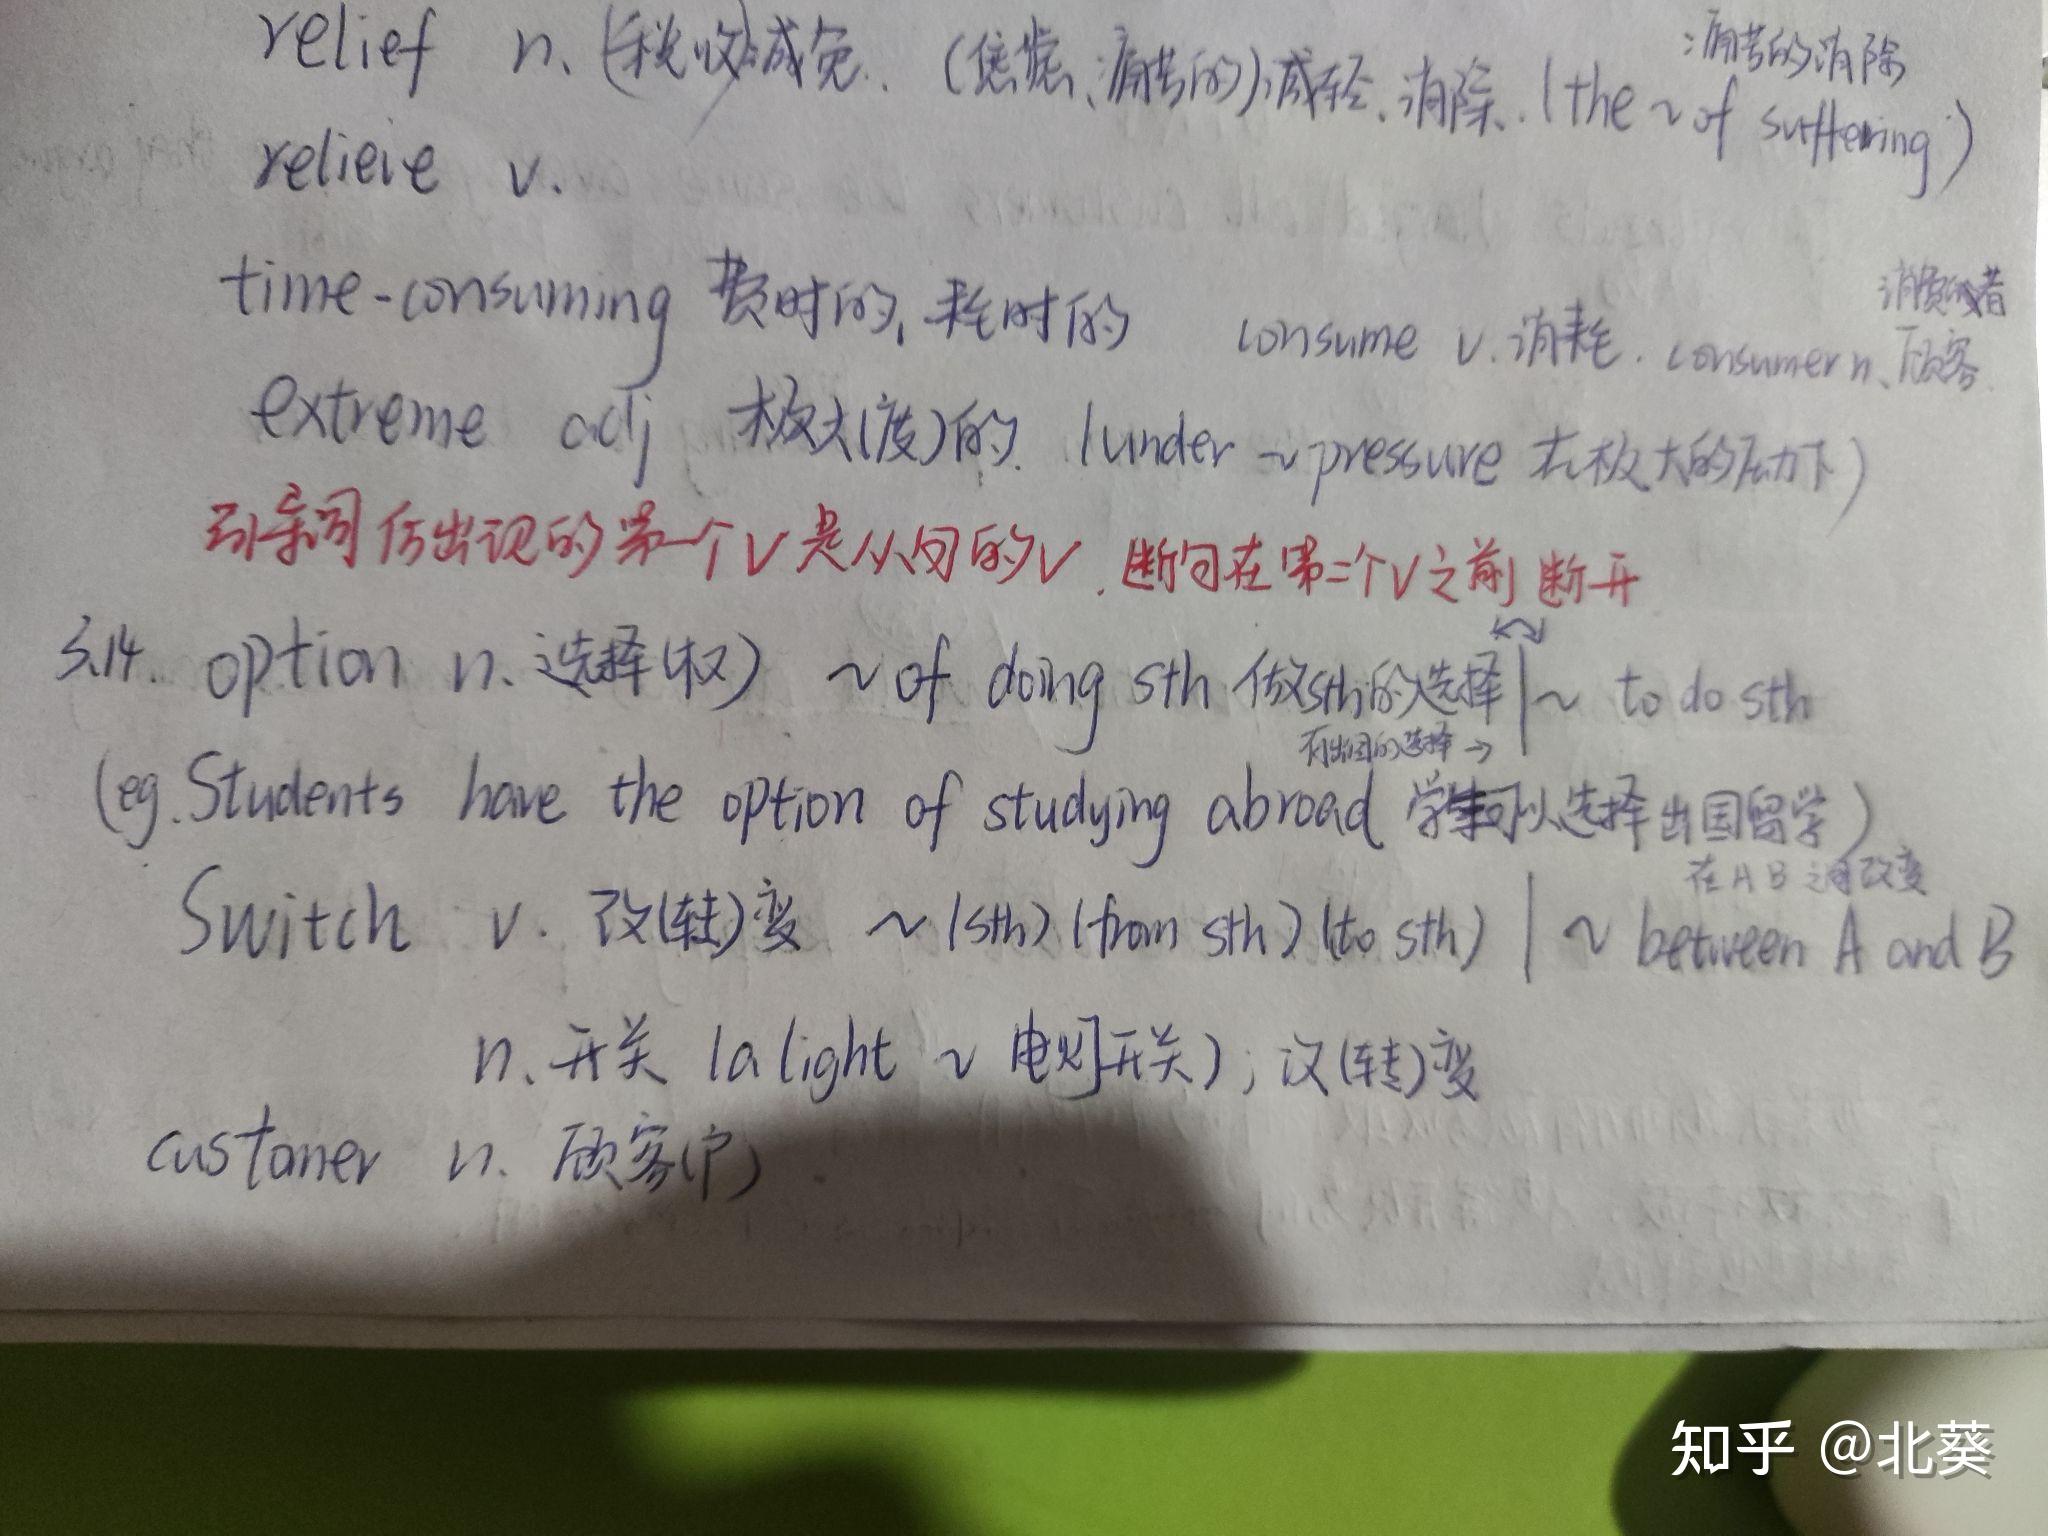 痛苦的消除
relief n. (税收)减免. (焦虑、痛苦的)减轻、消除. (the ~ of suffering)
relieve v.
消费者
time-consuming 费时的, 耗时的 consume v. 消耗. consumer n. 顾客
extreme adj 极大(度)的. (under ~ pressure 在极大的压力下)
引导词后出现的第一个V是从句的V. 断句在第二个V之前断开
3.14. option n. 选择(权) ~ of doing sth 做sth的选择 | ~ to do sth
有出国的选择 →
(eg. Students have the option of studying abroad 学生可以选择出国留学)
在A B之间改变
Switch v. 改(转)变 ~ (sth) (from sth) (to sth) | ~ between A and B
n. 开关 (a light ~ 电灯开关); 改(转)变
customer n. 顾客(户)
知乎 @北葵